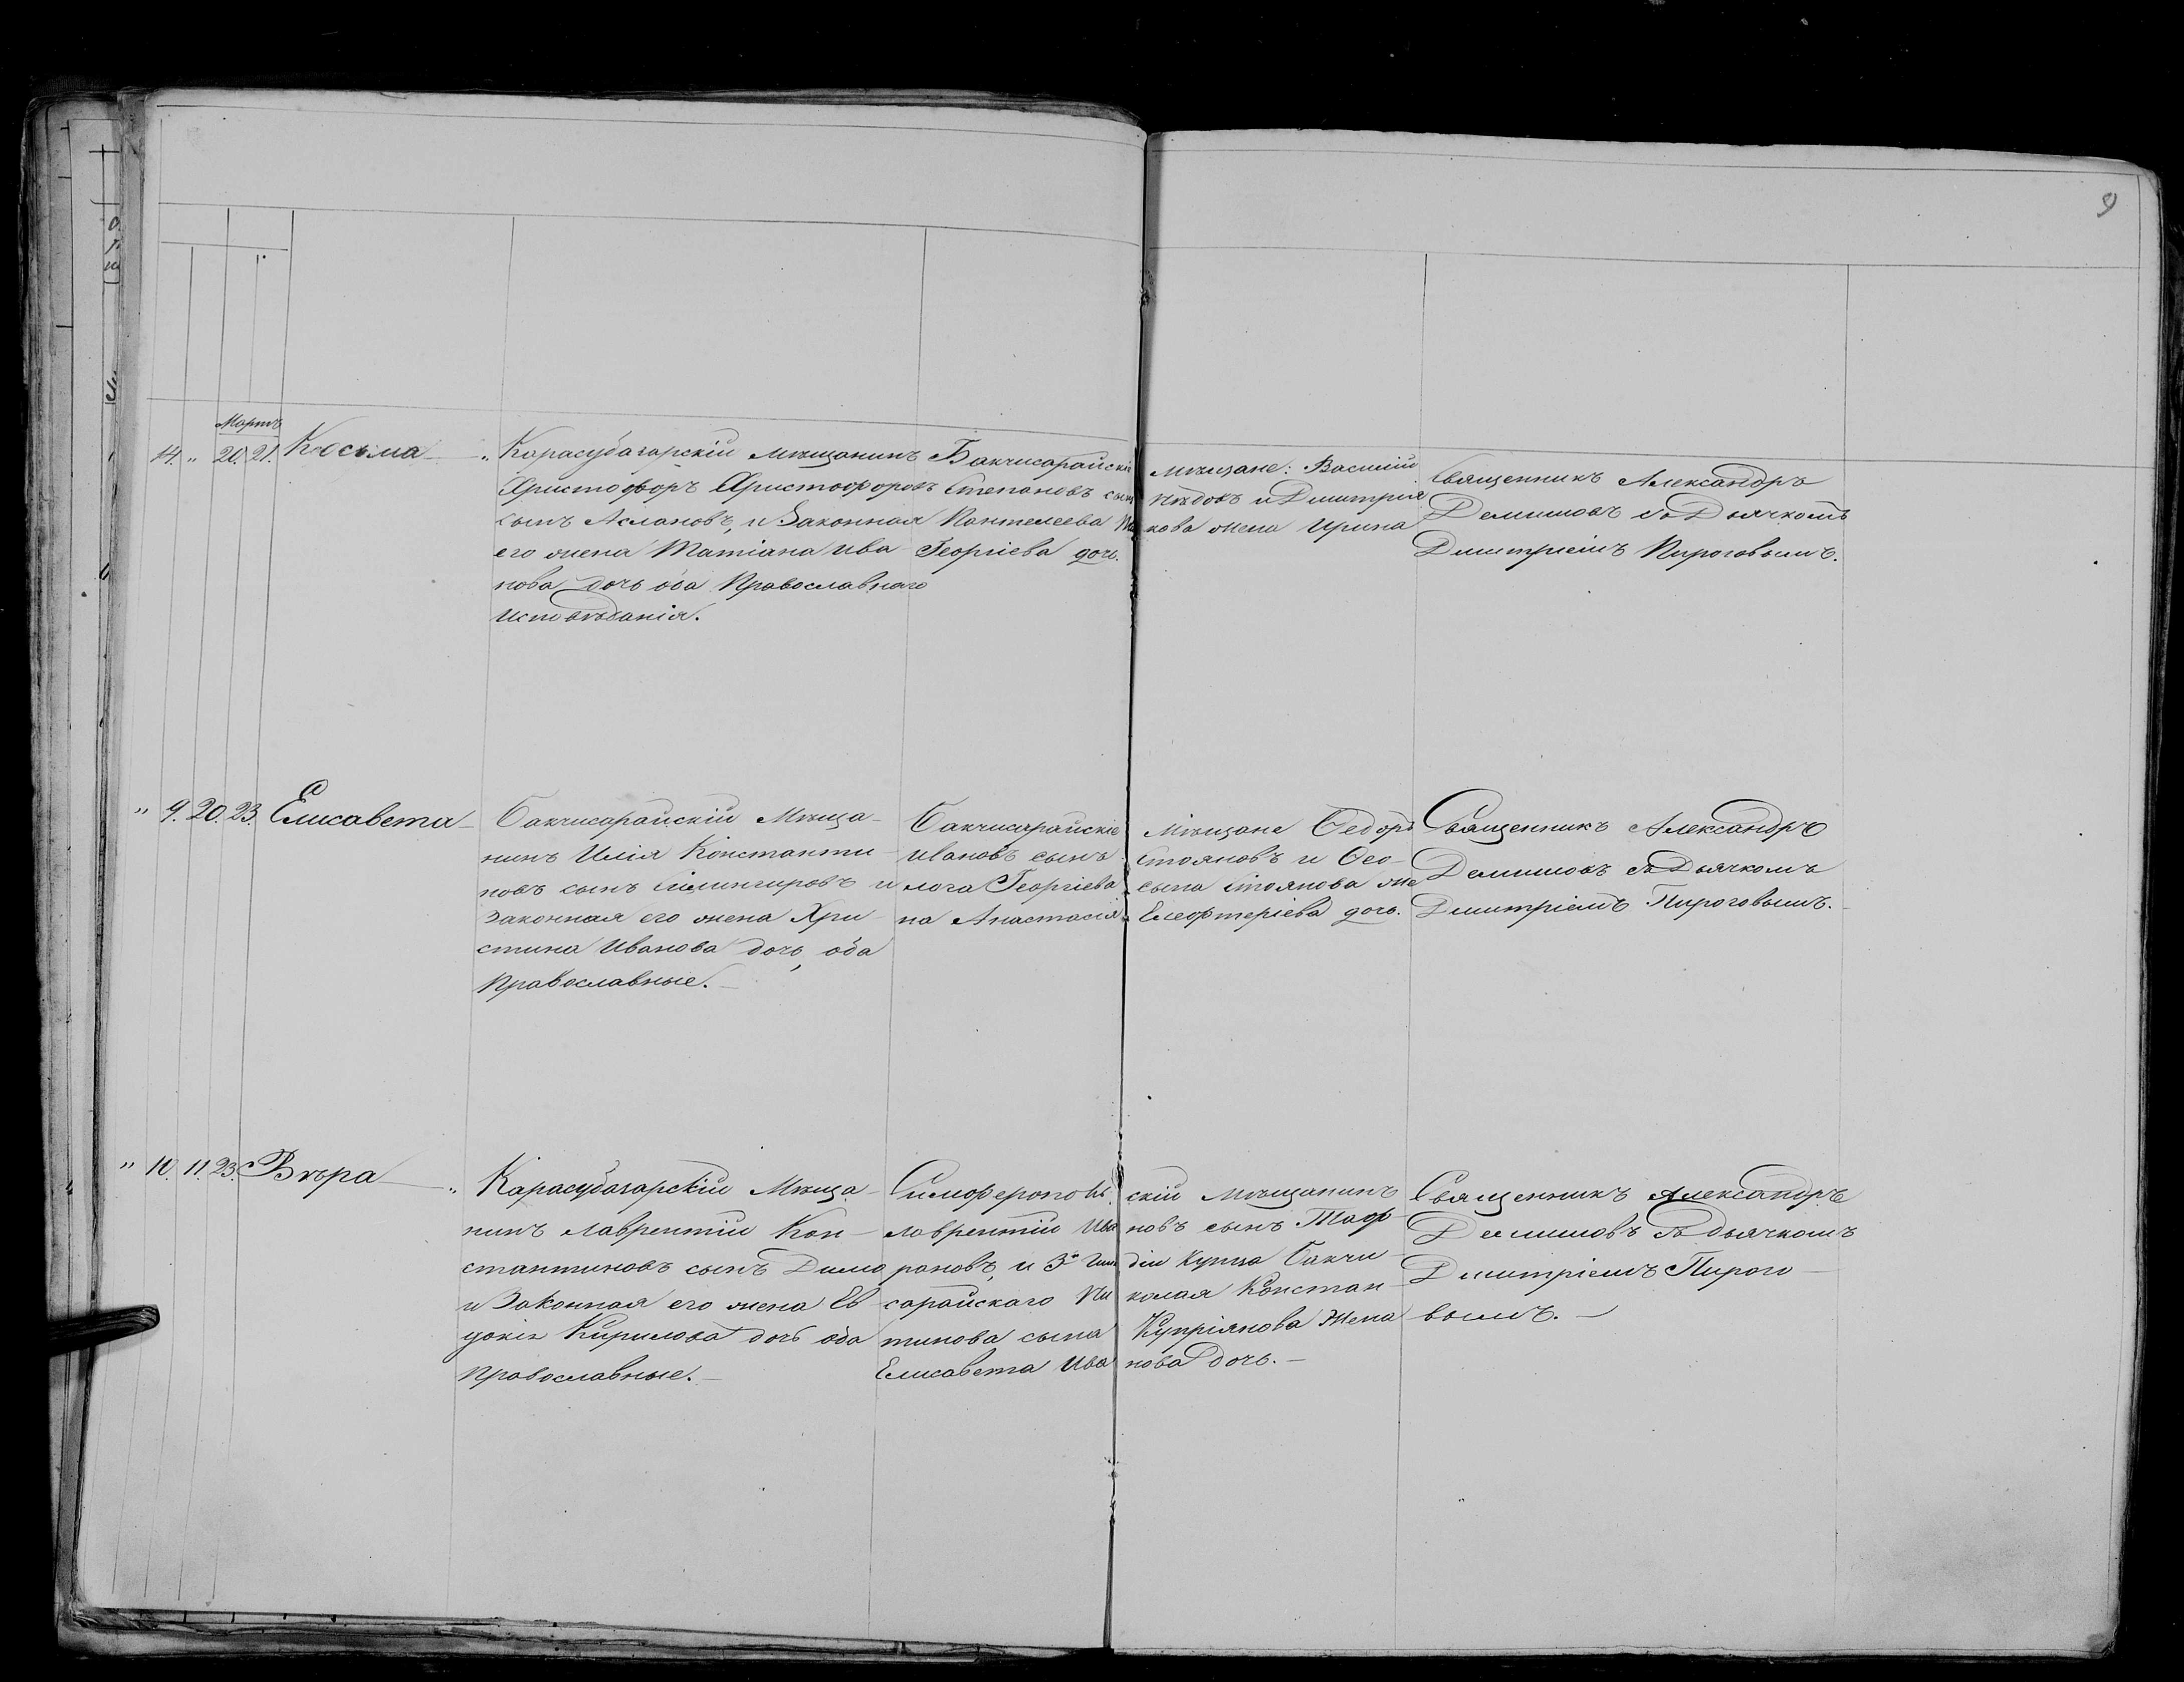 9
Мартъ
14. „ 20. 21. Косьма
Карасубазарскій мѣщанинъ
Христофоръ Христофоровъ
сынъ Аслановъ, и Законная
его жена Татіана Ива
нова дочь оба Православнаго
исповѣданія.
Бакчисарайскіе мѣщане: Василій
Степановъ сынъ и Дмитрія
Пантелеева кова жена Ирина
Георгіева дочь.
Священникъ Александръ
Демишовъ съ Дьячкомъ
Дмитріемъ Пироговымъ.
„ 9. 20. 23. Елисавета
Бакчисарайскій Мѣща-
нинъ Илія Константи-
новъ сынъ и
Законная его жена Хри-
стина Иванова дочь, оба
Православные.
Бакчисарайскіе Мѣщане Ѳедоръ
Ивановъ сынъ Стояновъ и Ѳео-
лога Георгіева сына Стоянова же
на Анастасія Елефтеріева дочь.
Священникъ Александръ
Демишовъ съ Дьячкомъ
Дмитріемъ Пироговымъ.
„ 10. 11. 23. Вѣра
Карасубазарскій Мѣща-
нинъ Лаврентій Кон-
стантиновъ сынъ Димо
и Законная его жена Ев
докія Кирилова дочь оба
Православные.
Симферополь скій мѣщанинъ
Лаврентій Ива новъ сынъ Таф
рановъ, и 3й Гиль діи Купца Бакчи
сарайскаго Ни колая Констан
тинова сына Купріянова Жена
Елисавета Ива нова дочь.
Священникъ Александръ
Демишовъ съ дьячкомъ
Дмитріемъ Пирого
вымъ.